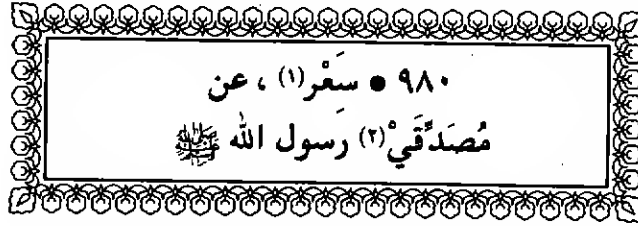 ٩٨٠ ● سَعْر(١) ، عن
مُصَدِّقَيْ(٢) رسول الله ﷺ